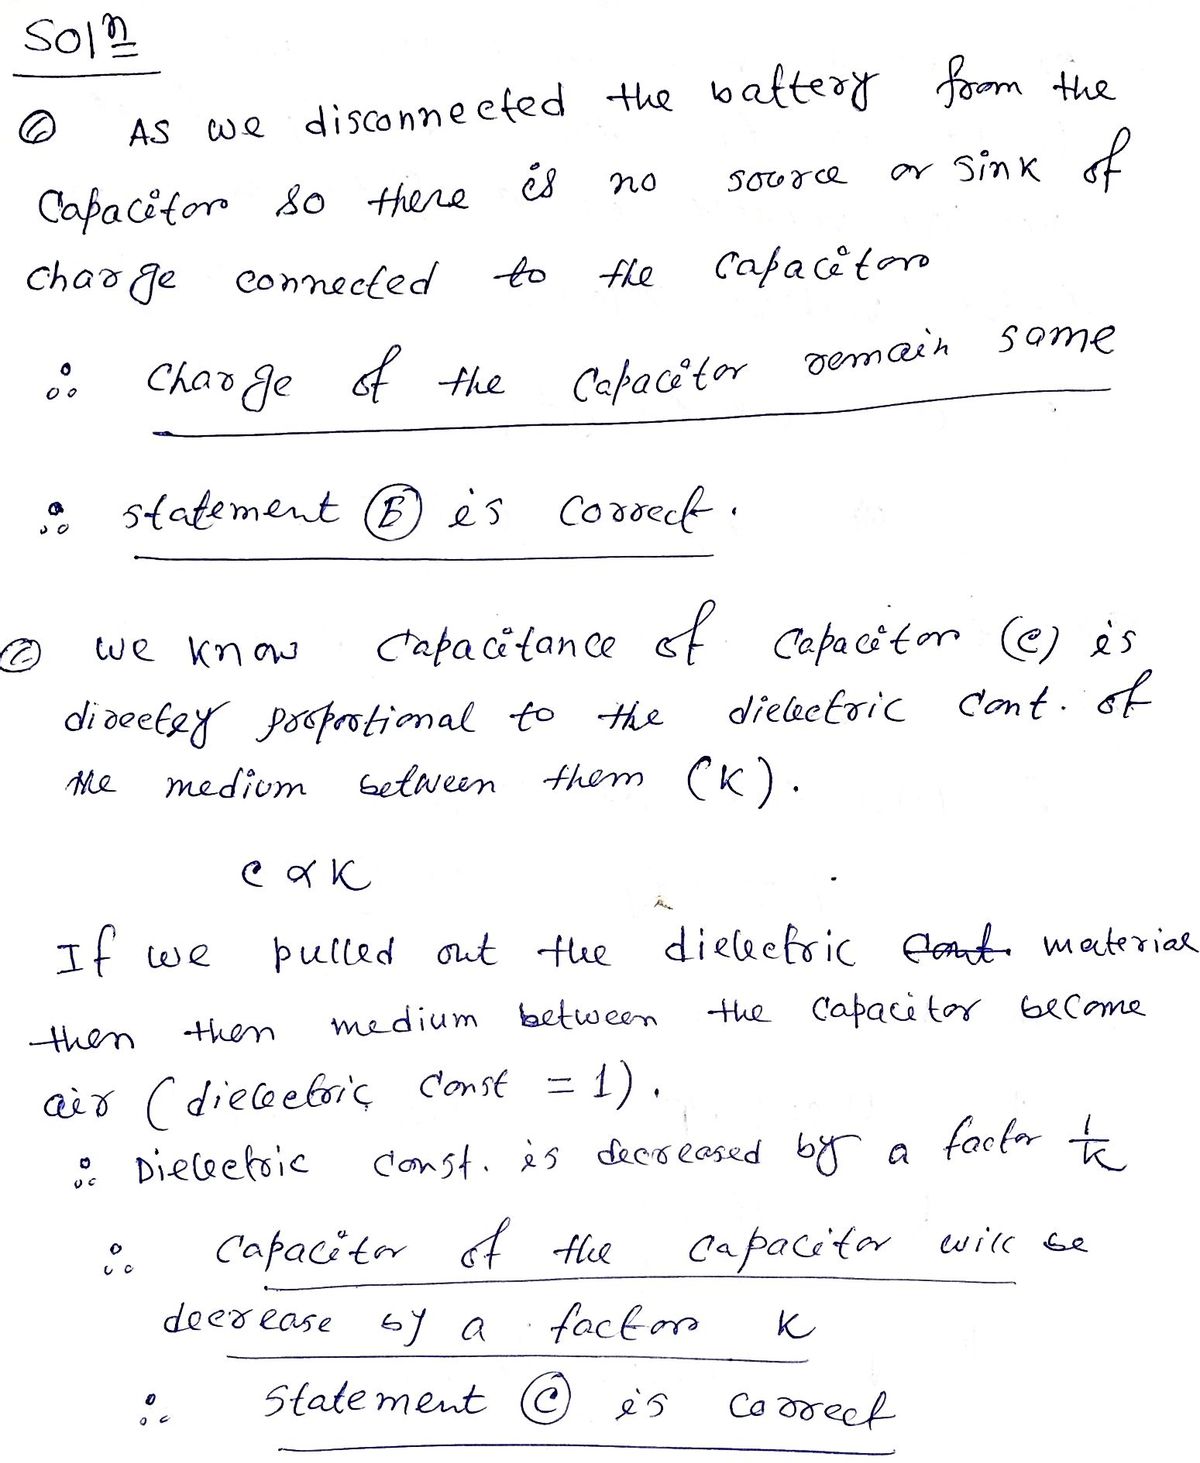 Soln
① As we disconnected the battery from the
Capacitor so there is no source or sink of
charge connected to the capacitor
∴ Charge of the Capacitor remain same
∴ statement Ⓑ is correct.
② we know Capacitance of Capacitor (C) is
directly proportional to the dielectric Cont. of
the medium between them (K).
C ∝ K
If we pulled out the dielectric cont. material
then then medium between the Capacitor become
air (dielectric Const = 1).
∴ Dielectric Const. is decreased by a factor 1/K
∴ Capacitor of the Capacitor will be
decrease by a factor K
∴ Statement Ⓒ is correct